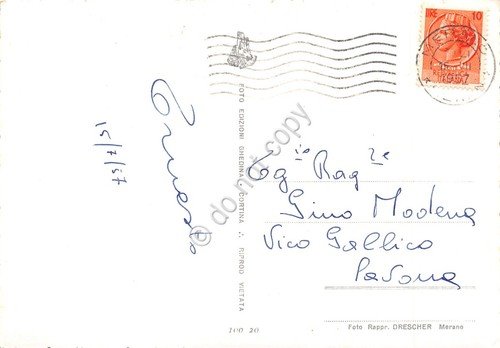 LIRE 10
1957
15/7/57
Ernesto
FOTO EDIZIONI GHEDINA - CORTINA ∴ RIPROD VIETATA
© do not copy
Eg io Rag re
Gino Modena
Vico Gallico
Savona
Foto Rappr. DRESCHER Merano